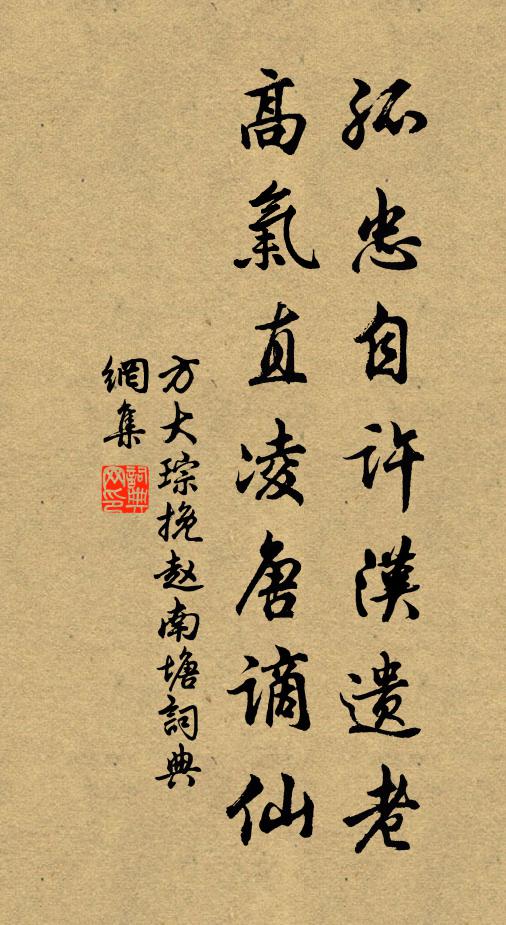 孤忠自许漢遗老
高氣直凌唐谪仙
方大琮挽赵南塘詞典
網集
詞典網印